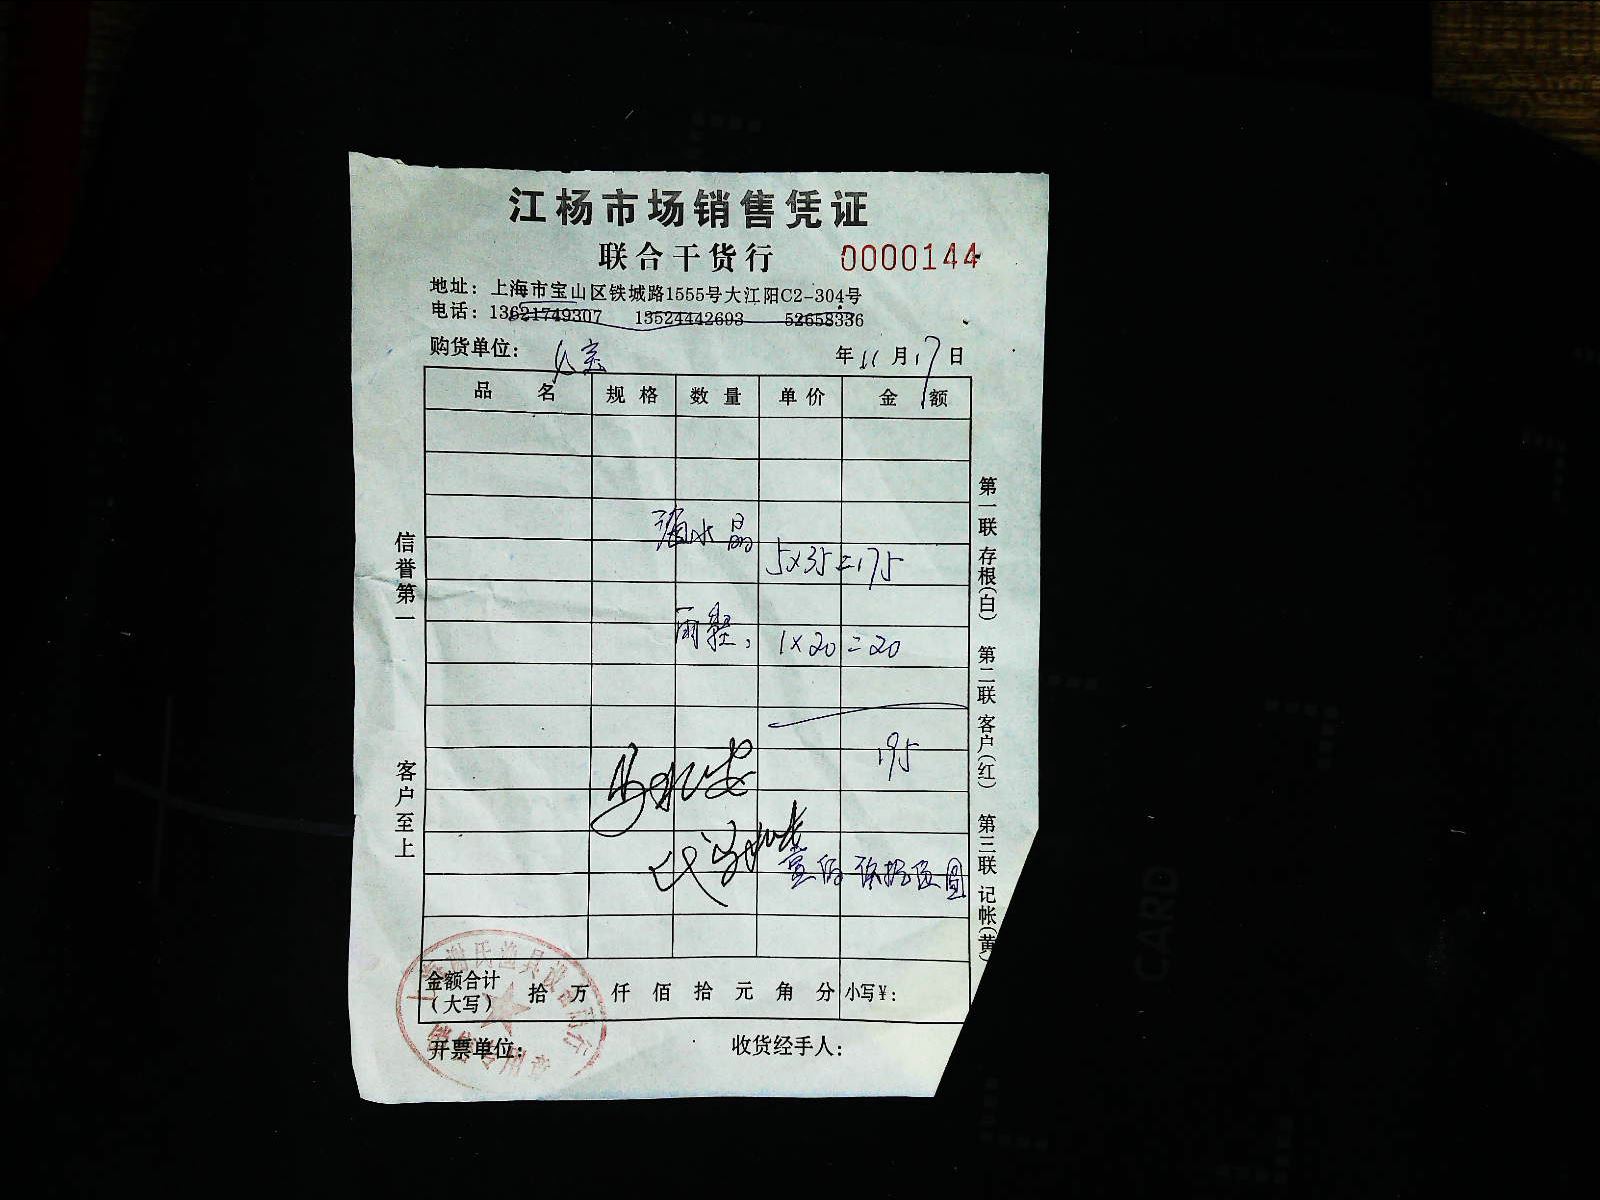 江杨市场销售凭证
联合干货行 0000144
地址：上海市宝山区铁城路1555号大江阳C2-304号
电话：13621749307 13524442693 52658336
购货单位： 年11月17日
品名 规格 数量 单价 金额
水晶
5×35=175
雨鞋， 1×20=20
195
代
壹佰玖拾伍圆
金额合计（大写） 拾万仟佰拾元角分 小写¥：
开票单位： 收货经手人：
信誉第一 客户至上
第一联 存根(白) 第二联 客户(红) 第三联 记帐(黄)